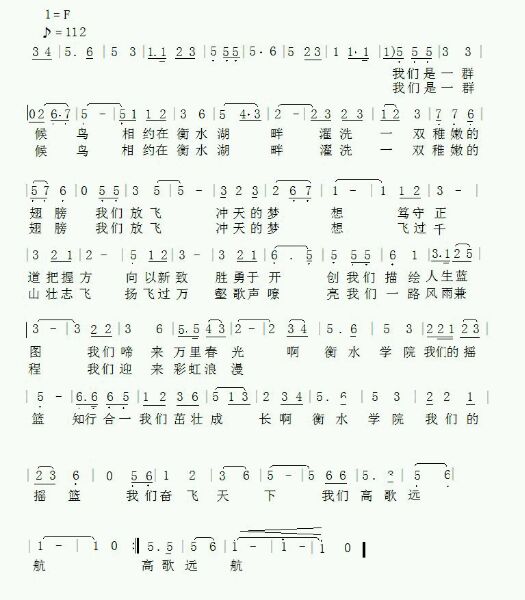 1=F
♪=112
3 4 | 5. 6 | 5 3 | 1.1 2 3 | 5 5 5 | 5·6 | 5 2 3 | 1 1·1 | 1)5 5 5 | 3 3 |
我们是一群
我们是一群
|0 2 6·7 | 5 - | 5 1 1 2 | 3 6 | 5 4·3 | 2 - | 2 3 2 3 | 1 2 3 | 7 7 6 |
候 鸟 相约在衡水湖 畔 濯洗 一 双稚嫩的
候 鸟 相约在衡水湖 畔 濯洗 一 双稚嫩的
|5 7 6 | 0 5 5 | 3 5 | 5 - | 3 2 3 | 2 6 7 | 1 - | 1 1 2 | 3 - |
翅 膀 我们放飞 冲天的梦 想 笃守正
翅 膀 我们放飞 冲天的梦 想 飞过千
| 3 2 1 | 2 - | 5 1 2 | 3 - | 3 2 1 | 6 . 5 | 5 5 5 | 6 1 2 | 3.1 2 5 |
道把握方 向以新致 胜勇于开 创我们描绘人生蓝
山壮志飞 扬飞过万 壑歌声嘹 亮我们一路风雨兼
|3 - | 3 2 2 | 3 6 | 5.5 4 3 | 2 - | 2 3 4 | 5 . 6 | 5 3 | 2 2 1 2 3 |
图 我们啼 来 万里春 光 啊 衡水 学院 我们的摇
程 我们迎 来 彩虹浪 漫
| 5 - | 6.6 6 5 | 1 2 3 6 | 5 1 3 | 2 3 4 | 5. 6 | 5 3 | 2 2 1 |
篮 知行合一我们茁壮成 长啊 衡水 学院 我们的
| 2 3 6 | 0 5 6 | 1 2 | 3 6 | 5 - | 5 6 6 | 5. 3 | 5 6 |
摇 篮 我们奋飞 天 下 我们高歌远
|1 - | 1 0 :‖ 5. 5 | 5 6 | 1 - | 1 - | 1 0 ‖
航 高歌远 航